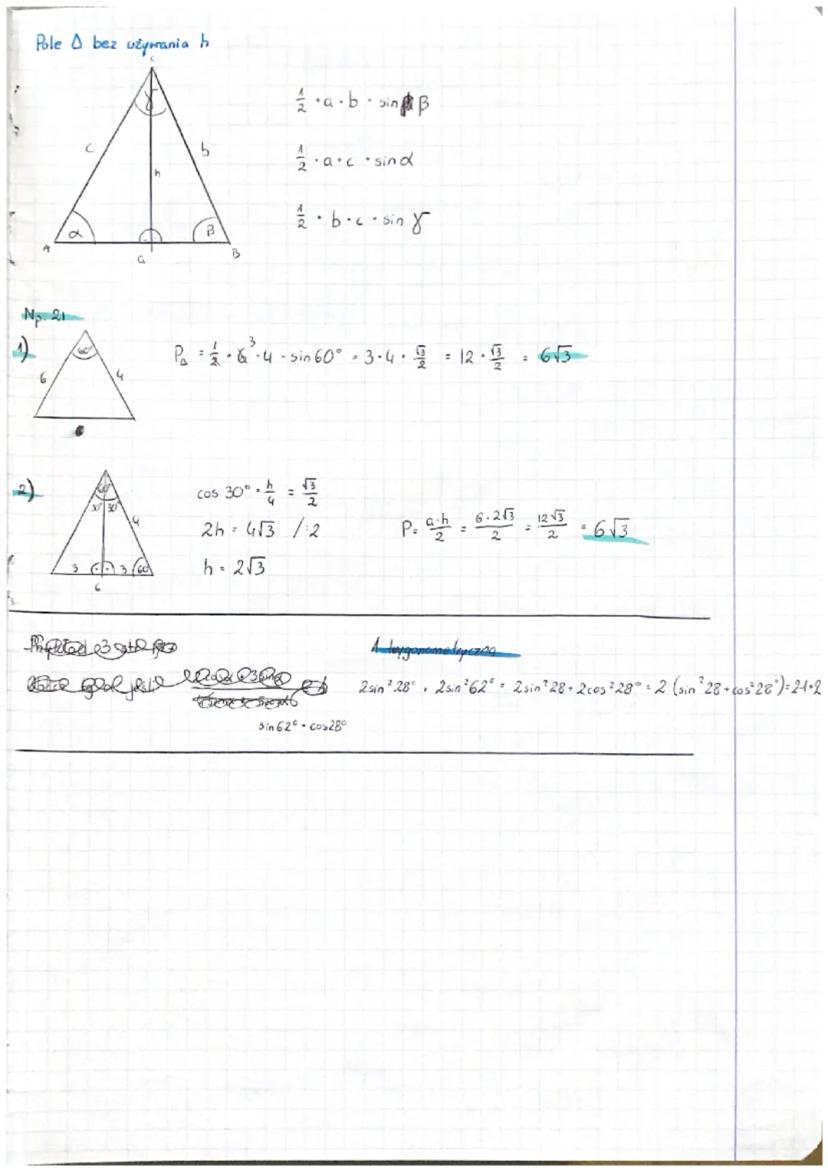 Pole Δ bez używania h
C
γ
c
b
h
α
β
A
a
B
1/2 · a · b · sin β
1/2 · a · c · sin α
1/2 · b · c · sin γ
Np. 21
1)
60°
6
4
P△ = 1/2 · 6³ · 4 · sin 60° = 3 · 4 · √3/2 = 12 · √3/2 = 6√3
2)
60°
30° 30°
4
3 3 60°
6
cos 30° = h/4 = √3/2
2h = 4√3 /:2
h = 2√3
P = a·h/2 = 6·2√3/2 = 12√3/2 = 6√3
1 trygonometryczna
2sin²28° + 2sin²62° = 2sin²28 + 2cos²28° = 2 (sin²28 + cos²28°) = 2·1=2
sin 62° = cos 28°